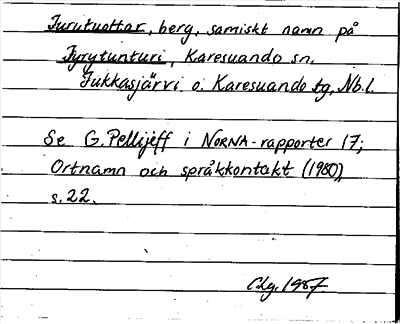 Jurutuottar, berg, samiskt namn på
Jyrytunturi, Karesuando sn.
Jukkasjärvi o. Karesuando tg, Nb.l.
Se G. Pellijeff i NORNA-rapporter 17;
Ortnamn och språkkontakt (1980),
s. 22.
Chg. 1987.